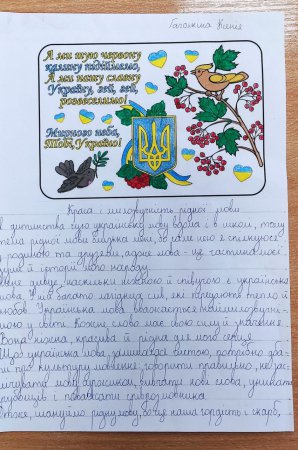 Ксенія
А ми тую червону
калину підіймемо,
А ми нашу славну
Україну, гей, гей,
розвеселимо!
Мирного неба,
Тобі, Україно!
Краса і милозвучність рідної мови
дитинства чую українську мову вдома і в школі, тому
тема рідної мови близька мені, бо саме нею я спілкуюся
родиною та друзями, адже мова - це частина моєї
душі й історії мого народу.
мене дивує, наскільки ніжною й співучою є українська
мова. У ній багато лагідних слів, які передають тепло й
любов. Українська мова вважається наймилозвучні-
у світі. Кожне слово має свою силу й значення.
Вона ніжна, красива й рідна для мого серця.
Щоб українська мова залишалася чистою, потрібно дба-
ти про культуру мовлення: говорити правильно, не зас-
мічувати мову суржиком, вивчати нові слова, уникати
грубощів і поважати співрозмовника.
Отже, шануймо рідну мову, бо це наша гордість і скарб,